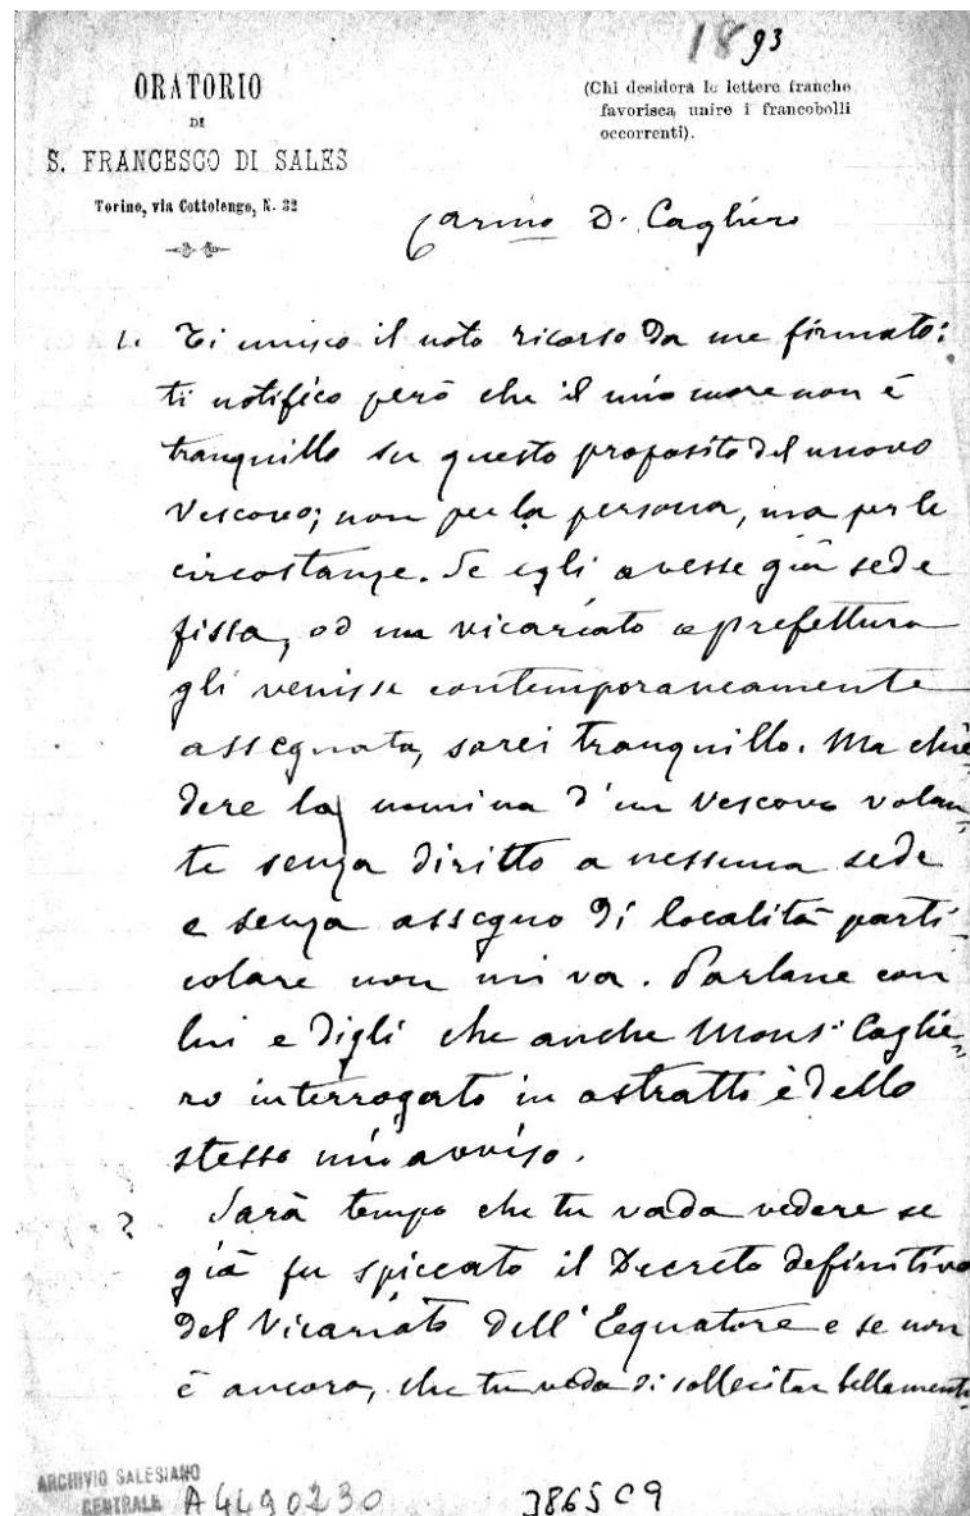 1893
ORATORIO
DI
S. FRANCESCO DI SALES
Torino, via Cottolengo, N. 32
(Chi desidera le lettere franche
favorisca unire i francobolli
occorrenti).
Carmo D. Cagliero
1. Ti unisco il noto ricorso da me firmato:
ti notifico però che il mio cuore non è
tranquillo su questo proposito del nuovo
Vescovo; non per la persona, ma per le
circostanze. Se egli avesse già sede
fissa, od un vicariato o prefettura
gli venisse contemporaneamente
assegnata, sarei tranquillo. Ma chie-
dere la nomina d'un Vescovo volan-
te senza diritto a nessuna sede
e senza assegno di località parti-
colare non mi va. Parlane con
lui e digli che anche Mons. Caglie-
ro interrogato in astratto è dello
stesso mio avviso.
2. Sarà tempo che tu vada vedere se
già fu spiccato il Decreto definitivo
del Vicariato dell'Equatore e se non
è ancora, che tu veda di sollecitar bellamente
ARCHIVIO SALESIANO
CENTRALE
A4490230
3865C9